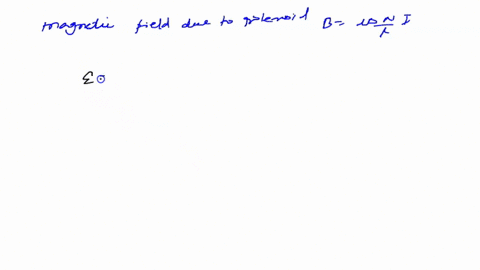 magnetic field due to solenoid B = μ0 N/l I
ε0